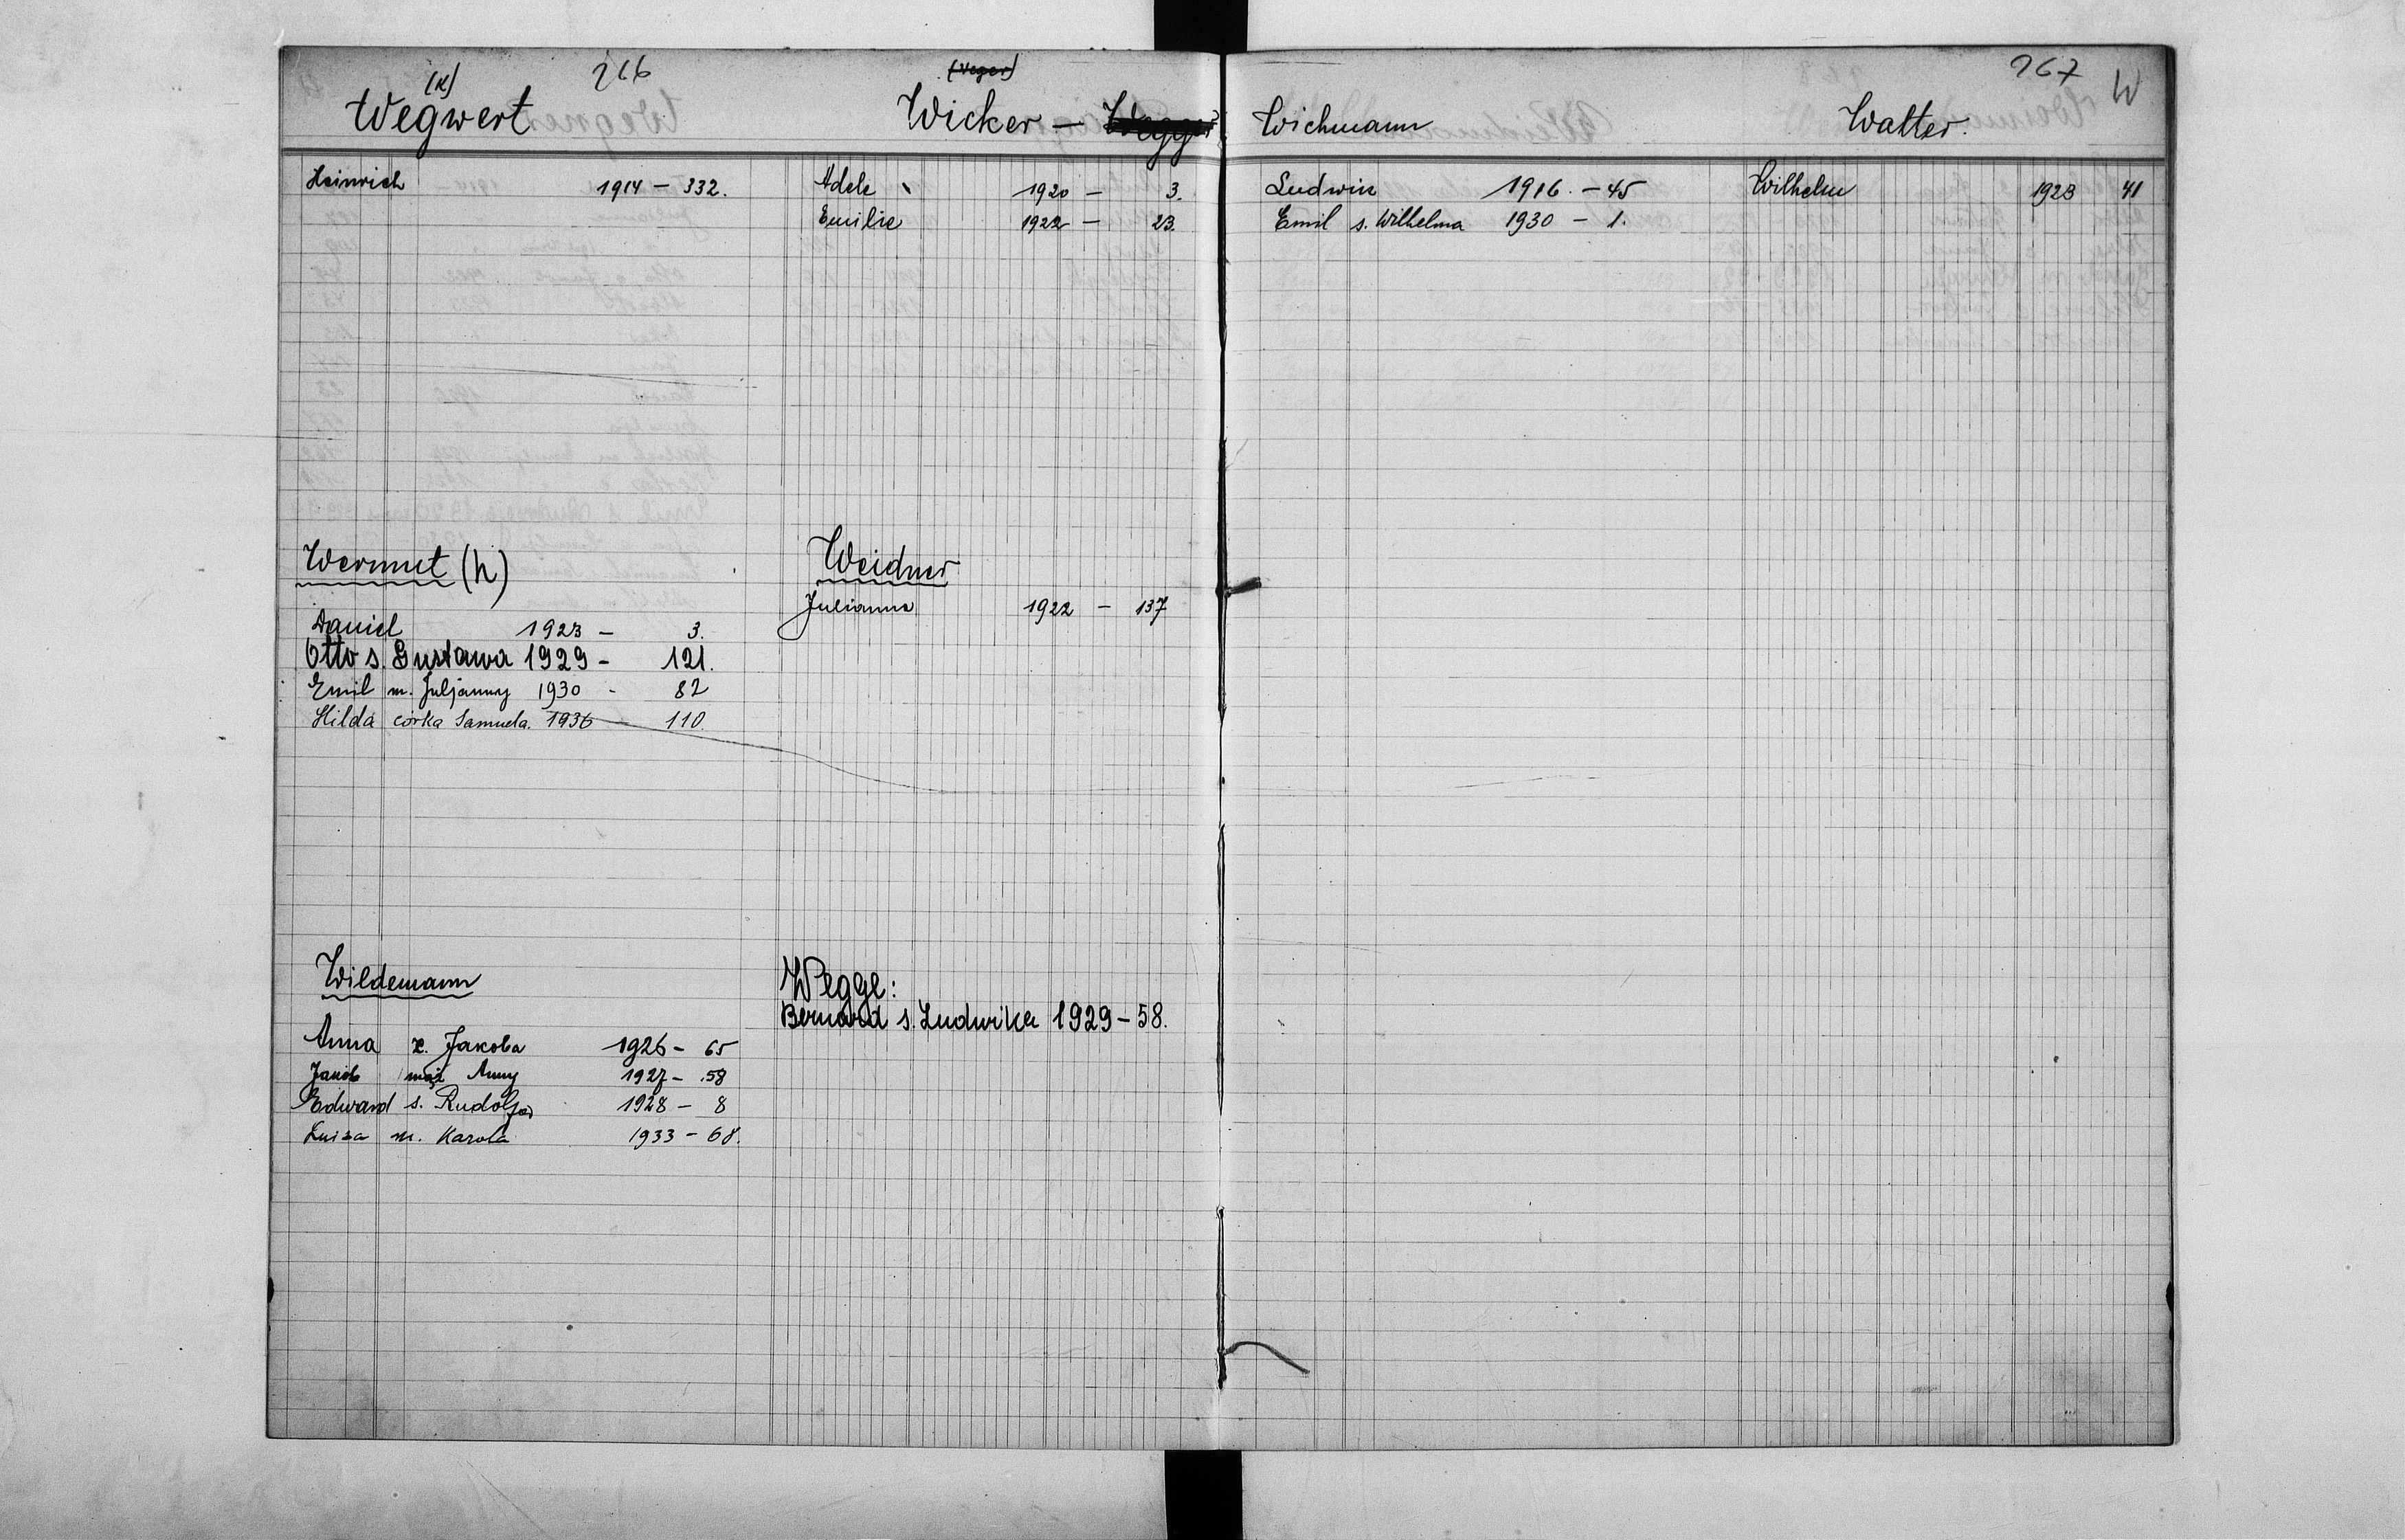 266
(k)
Wegwert
Heinrich 1914 - 332.
Wermut (h)
Daniel 1923 - 3.
Otto s. Gustawa 1929 - 121.
Emil m. Juljanny 1930 - 82
Hilda córka Samuela. 1936 - 110.
Wildemann
Anna ż. Jakoba 1926 - 65
Jakob mąż Anny 1927 - 58
Edward s. Rudolfa 1928 - 8
Luiza m. Karola 1933 - 68.
(Weger)
Wicker - Wegger
Adele 1920 - 3.
Emilie 1922 - 23.
Weidner
Julianna 1922 - 137
Wegge:
Bernard s. Ludwika 1929 - 58.
267 W
Wichmann
Ludwik 1916 - 45
Emil s. Wilhelma 1930 - 1.
Walter.
Wilhelm 1923 41